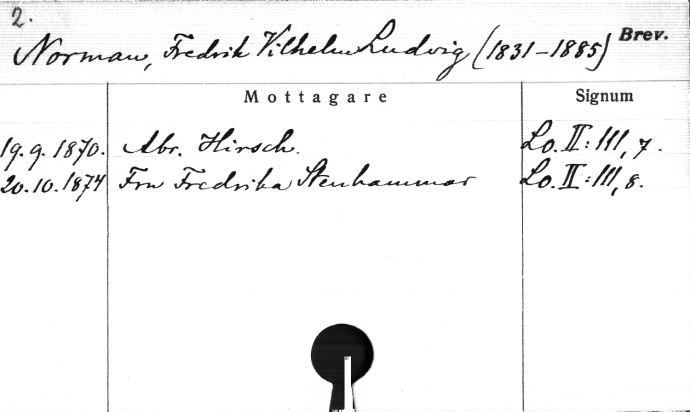 2.
Norman, Fredrik Vilhelm Ludvig (1831-1885) Brev.
Mottagare Signum
19.9.1870. Abr. Hirsch. Lo. II: 111, 7.
20.10.1874 Fru Fredrika Stenhammar Lo. II: 111, 8.